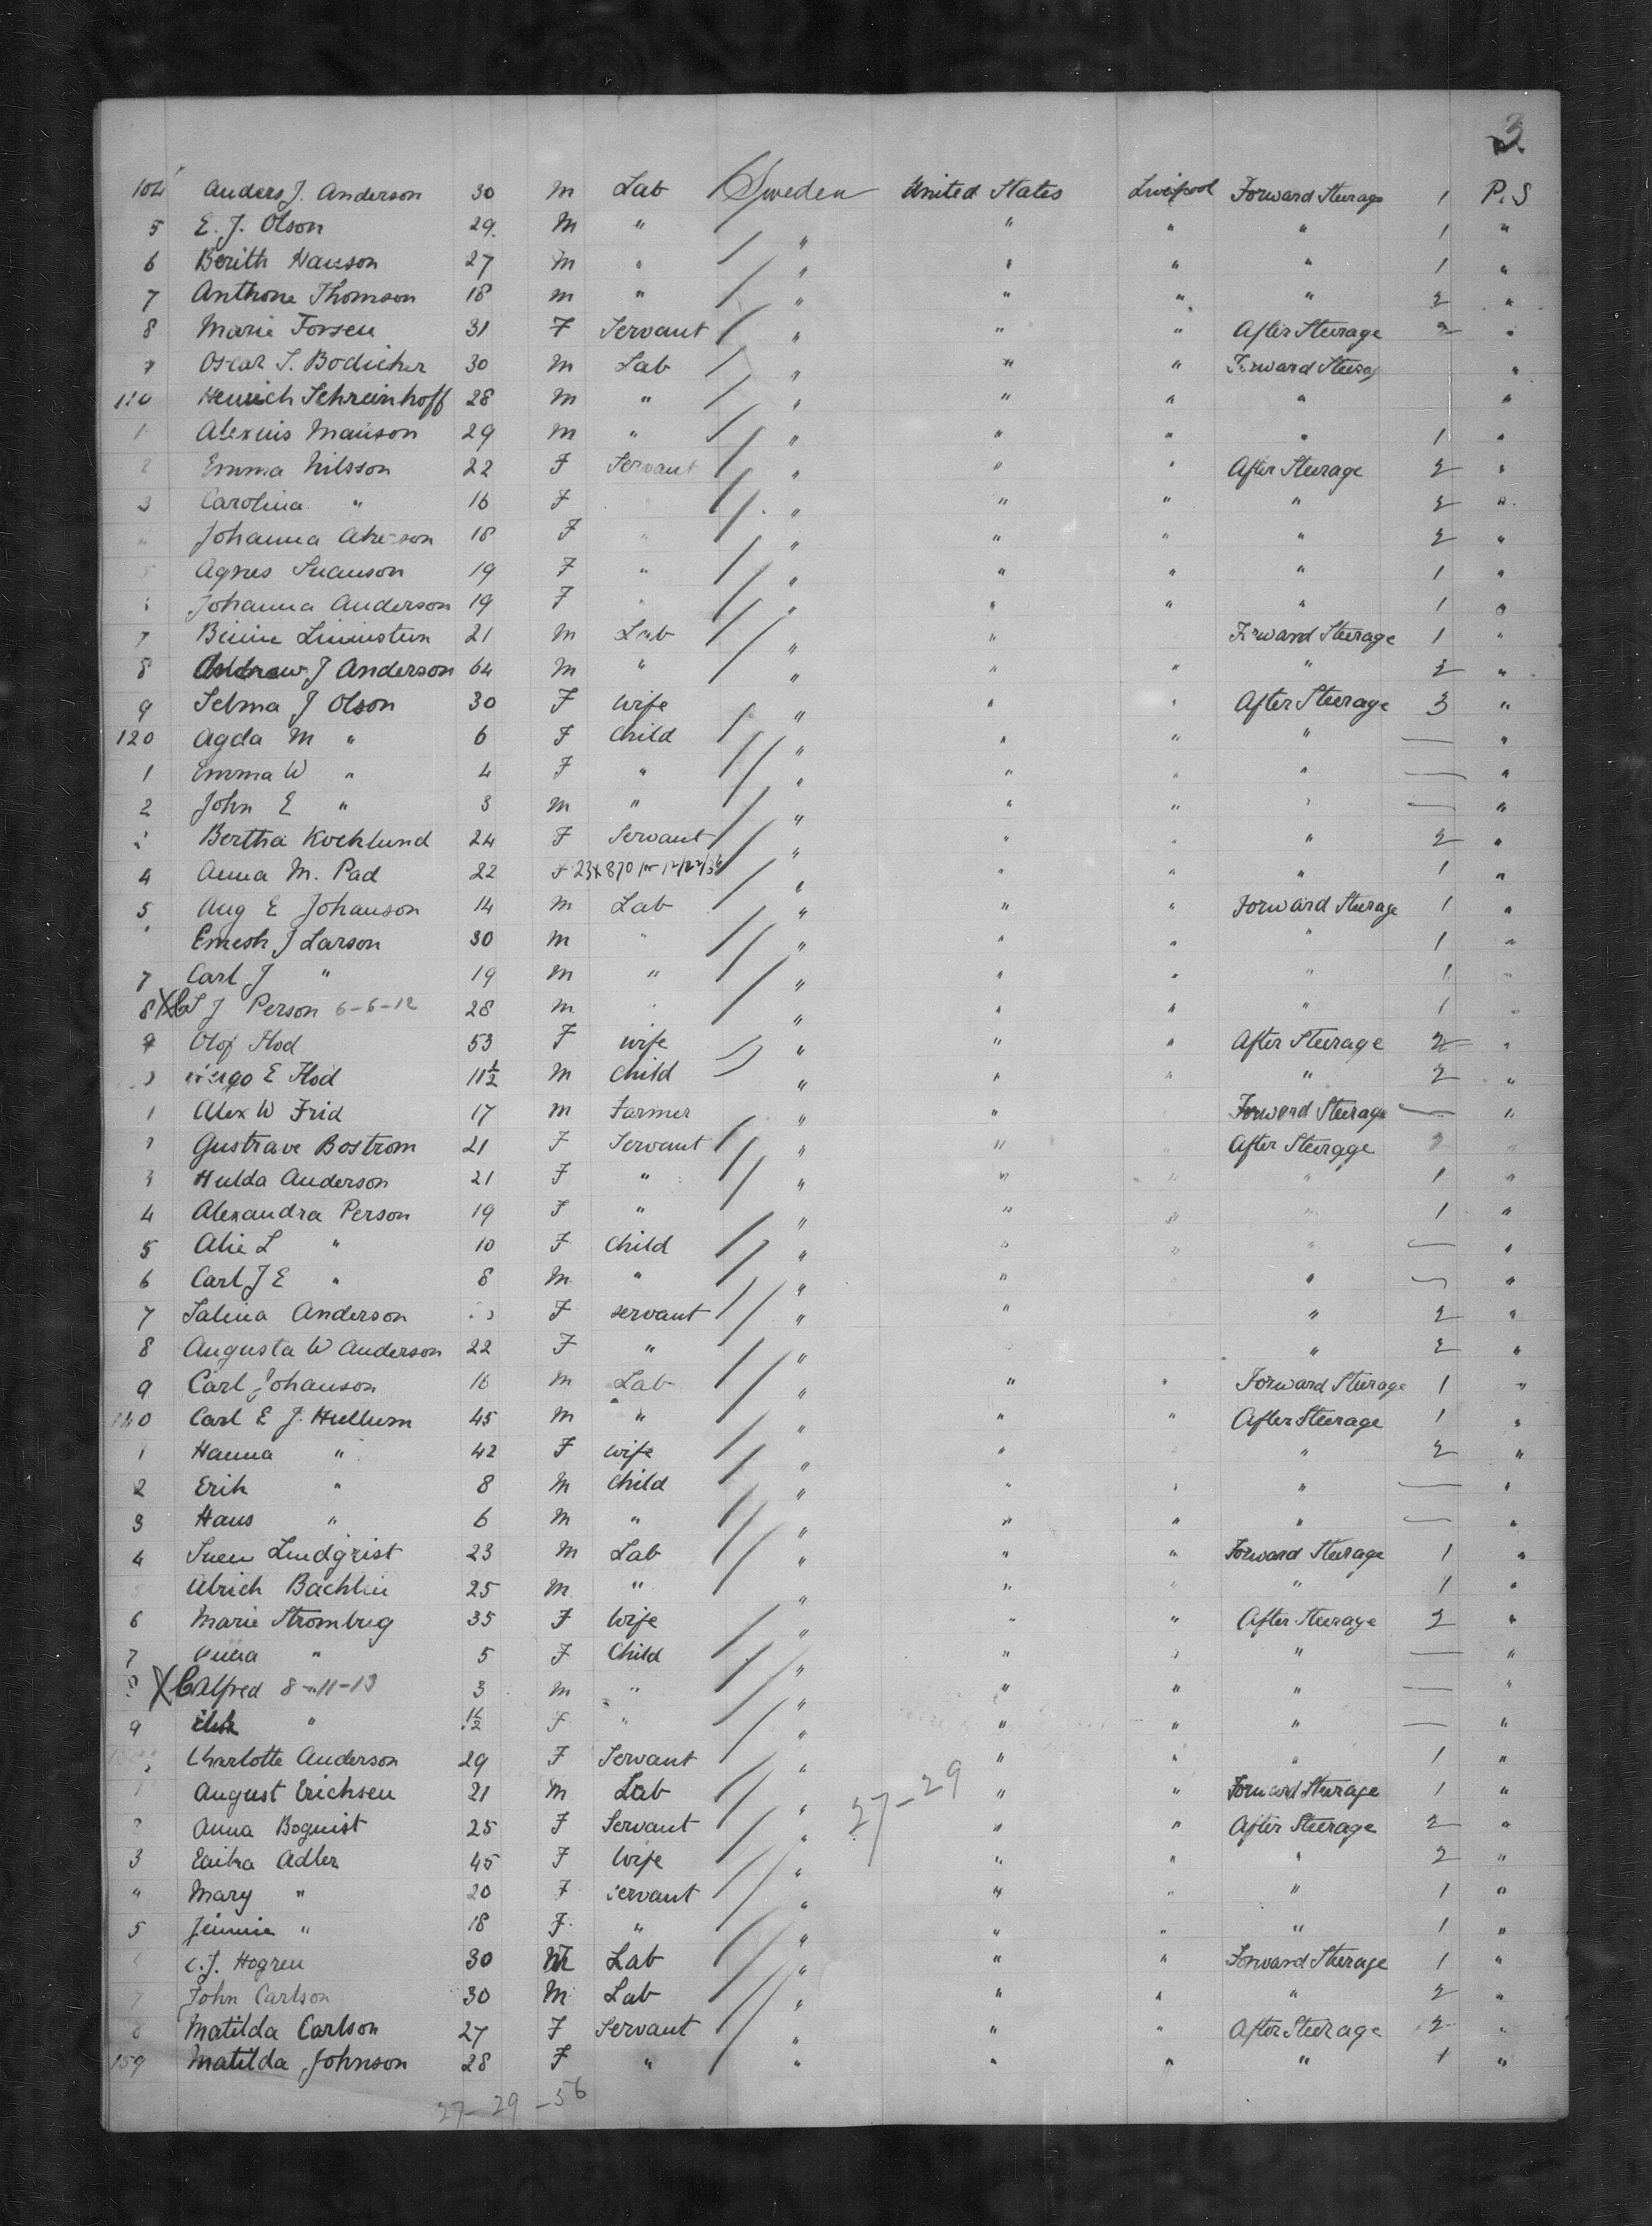 3.
104 Anders J. Anderson 30 M Lab Sweden United States Liverpool Forward Steerage 1 P.S
5 E. J. Olson 29. M " " " " " 1 "
6 Berith Hanson 27 M " " " " " 1 "
7 Anthone Thomson 18 M " " " " " 2 "
8 Marie Forsen 31 F Servant " " " After Steerage 2 "
9 Oscar S. Bodicher 30 M Lab " " " Forward Steerag "
110 Henrich Schreinhoff 28 M " " " " " "
1 Alexius Manson 29 M " " " " " 1 "
2 Emma Nilsson 22 F Servant " " " After Steerage 2 "
3 Carolina " 16 F " " " " 2 "
" Johanna son 18 F " " " " " 2 "
5 Agnes Suanson 19 F " " " " " 1 "
Johanna Anderson 19 F " " " " " 1 "
7 21 M Lab " " Forward Steerage 1 "
8 Andrew J Anderson 64 M " " " " " 2 "
9 Selma J Olson 30 F Wife " " " After Steerage 3 "
120 Agda M " 6 F Child " " " " — "
1 Emma W " 4 F " " " " " — "
2 John E " 3 M " " " " " — "
Bertha Kocklund 24 F Servant " " " " 2 "
4 Anna M. Pad 22 F 23x870 12/22/36 " " " " 1 "
5 Aug E Johanson 14 M Lab " " " Forward Steerage 1 "
Ernesh J Larson 30 M " " " " " 1 "
7 Carl J " 19 M " " " " " 1 "
8 XC S J Person 6-6-12 28 M " " " " " 1 "
9 Olof Flod 53 F Wife " " " After Steerage 2 "
E Flod 11½ M Child " " " " 2 "
1 Alex W Frid 17 M Farmer " " Forward Steerage — "
2 Gustrave Bostrom 21 F Servant " " " After Steerage 2 "
3 Hulda Anderson 21 F " " " " " 1 "
4 Alexandra Person 19 F " " " " " 1 "
5 Alie L " 10 F Child " " " " — "
6 Carl J E " 8 M " " " " — "
7 Salina Anderson F servant " " " 2 "
8 Augusta W Anderson 22 F " " " 2 "
9 Carl Johanson 16 M Lab " " " Forward Steerage 1 "
140 Carl E J. Hullum 45 M " " " " After Steerage 1 "
1 Hanna " 42 F Wife " " " " 2 "
2 Erik " 8 M Child " " " " — "
3 Hans " 6 M " " " " " — "
4 Suen Lindgrist 23 M Lab " " " Forward Steerage 1 "
5 Ulrich Bachlin 25 M " " " " " 1 "
6 Marie Strombrg 35 F Wife " " " After Steerage 2 "
7 Anna " 5 F Child " " " " — "
8 XC Alfred 8-11-13 3 M " " " " " — "
9 " 1½ F " " " " " — "
Charlotte Anderson 29 F Servant " " " " 1 "
1 August Erichsen 21 M Lab " 27-29 " " Forward Steerage 1 "
2 Anna Boquist 25 F Servant " " " After Steerage 2 "
3 Adler 45 F Wife " " " " 2 "
" Mary " 20 F servant " " " " 1 "
5 Jennie " 18 F. " " " " " 1 "
C. J. Hogren 30 M Lab " " " Forward Steerage 1 "
7 John Carlson 30 M Lab " " " " 2 "
8 Matilda Carlson 27 F Servant " " " After Steerage 2 "
159 Matilda Johnson 28 F " " " " " 1 "
27-29-56